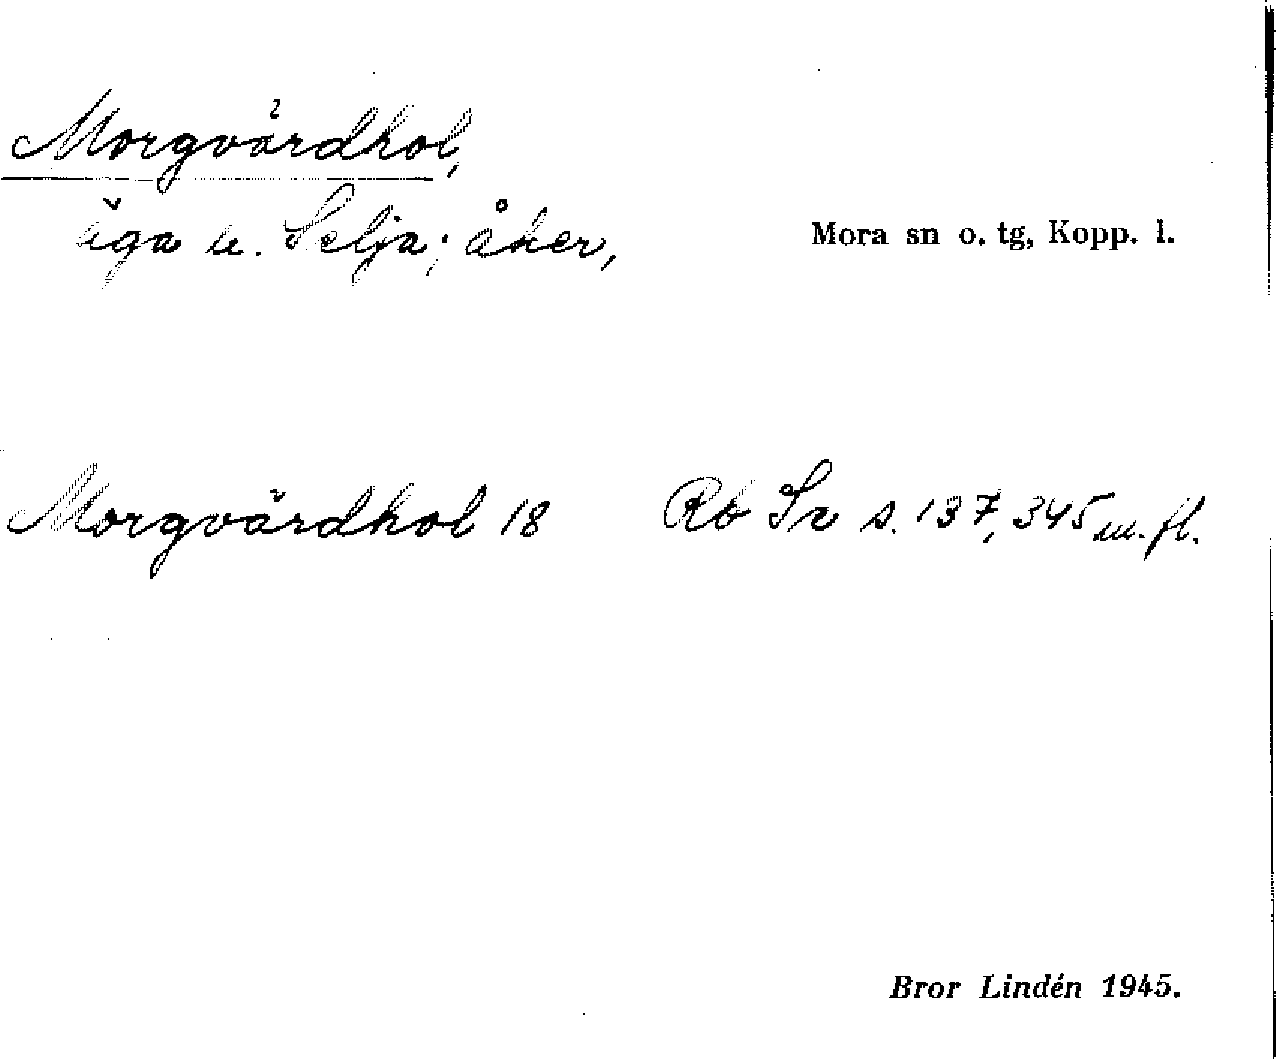 Morgvärdhol,
äga u. Selja; åker,
Mora sn o. tg, Kopp. l.
Morgvärdhol 18 Rb Sr s. 137, 345 m. fl.
Bror Lindén 1945.